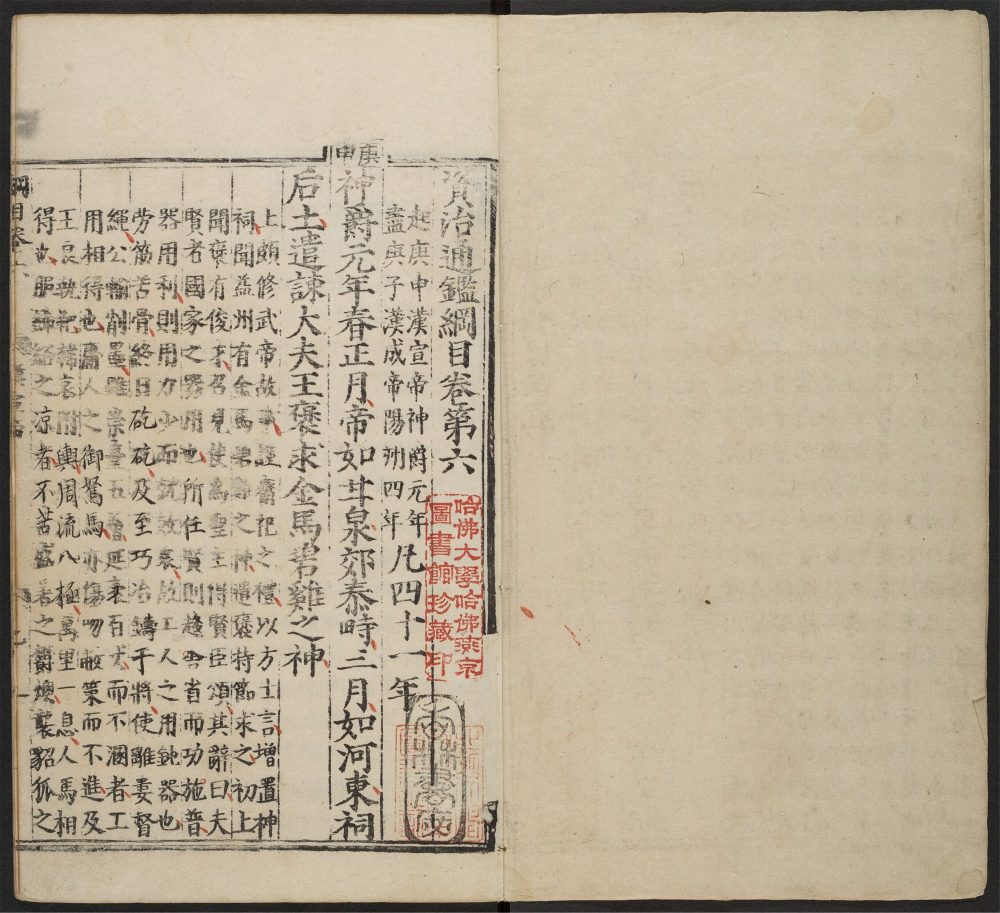 資治通鑑綱目卷第六
起庚申漢宣帝神爵元年
盡庚子漢成帝陽朔四年
凡四十一年
哈佛大學哈佛燕京
圖書館珍藏印
庚申
神爵元年春正月帝如甘泉郊泰畤三月如河東祠
后土遣諫大夫王褒求金馬碧雞之神
上頗修武帝故事謹齋祀之禮以方士言增置神
祠聞益州有金馬碧雞之神遣褒持節求之初上
聞褒有俊才召見使爲聖主得賢臣頌其辭曰夫
賢者國家之器用也所任賢則趨舍省而功施普
器用利則用力少而就效衆故工人之用鈍器也
勞筋苦骨終日矻矻及至巧冶鑄干將使離婁督
繩公輸削墨雖崇臺五層延袤百丈而不溷者工
用相得也庸人之御駑馬亦傷吻敝策而不進及
王良執靶韓哀附輿周流八極萬里一息人馬相
得也服絺綌之凉者不苦盛暑之鬱燠襲貂狐之
綱目卷六